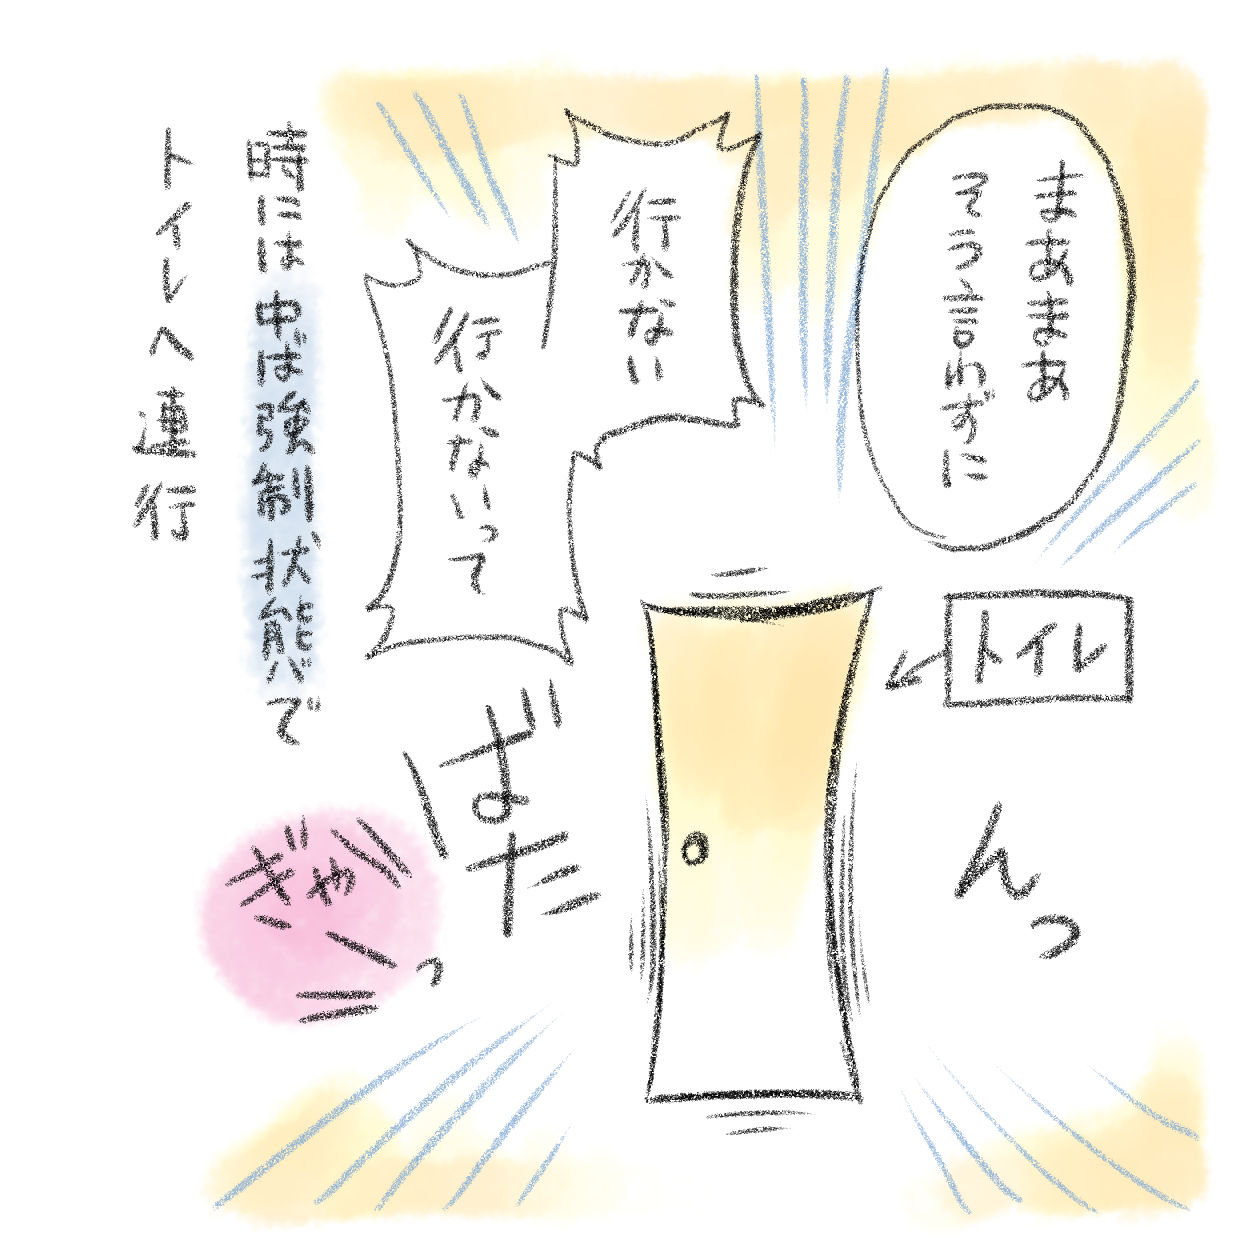 まあまあ
そう言わずに
行かない
行かないって
トイレ
ばたんっ
ぎゃーっ
時には中ば強制状態で
トイレへ連行